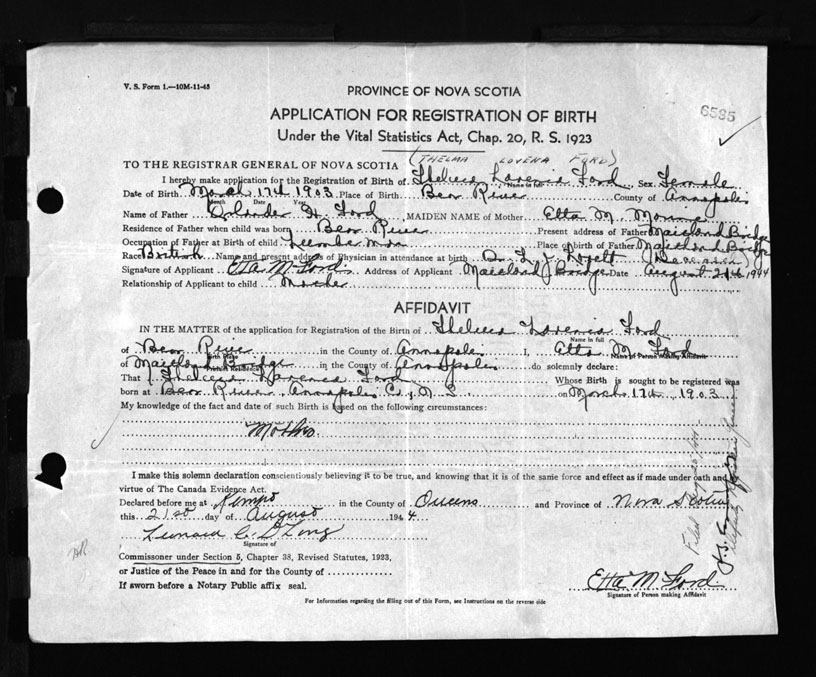 V. S. Form 1.—10M-11-43
PROVINCE OF NOVA SCOTIA
6595
APPLICATION FOR REGISTRATION OF BIRTH
Under the Vital Statistics Act, Chap. 20, R. S. 1923
(THELMA LOVENA FORD)
TO THE REGISTRAR GENERAL OF NOVA SCOTIA
I hereby make application for the Registration of Birth of Ford Sex Female
Name in full
Date of Birth March 17th 1903 Place of Birth Bear River County of Annapolis
Month Date Year
Name of Father H. Ford, MAIDEN NAME of Mother Etta M.
Residence of Father when child was born Bear River Present address of Father Maitland Bridge
Occupation of Father at Birth of child Lumber man Place of birth of Father Maitland Bridge
Race British Name and present address of Physician in attendance at birth Dr. L. J. Lovett (Deceased)
Signature of Applicant Etta M Ford. Address of Applicant Maitland Bridge Date August 21st 1944
Relationship of Applicant to child Mother
AFFIDAVIT
IN THE MATTER of the application for Registration of the Birth of Ford
Name in full
of Bear River in the County of Annapolis I, Etta M Ford
Birth Place
Name of Person Making Affidavit
of Maitland Bridge in the County of Annapolis do solemnly declare:
Present Residence
That Ford Whose Birth is sought to be registered was
born at Bear River Annapolis Co, N S. on March 17th 1903
My knowledge of the fact and date of such Birth is based on the following circumstances:
Mother.
I make this solemn declaration conscientiously believing it to be true, and knowing that it is of the same force and effect as if made under oath and
virtue of The Canada Evidence Act.
Declared before me at Kempt in the County of Queens and Province of Nova Scotia
this 21st day of August 1944
Signature of
Commissoner under Section 5, Chapter 38, Revised Statutes, 1923,
or Justice of the Peace in and for the County of
If sworn before a Notary Public affix seal.
Etta M Ford.
Signature of Person making Affidavit
For Information regarding the filling out of this Form, see Instructions on the reverse side
Filed